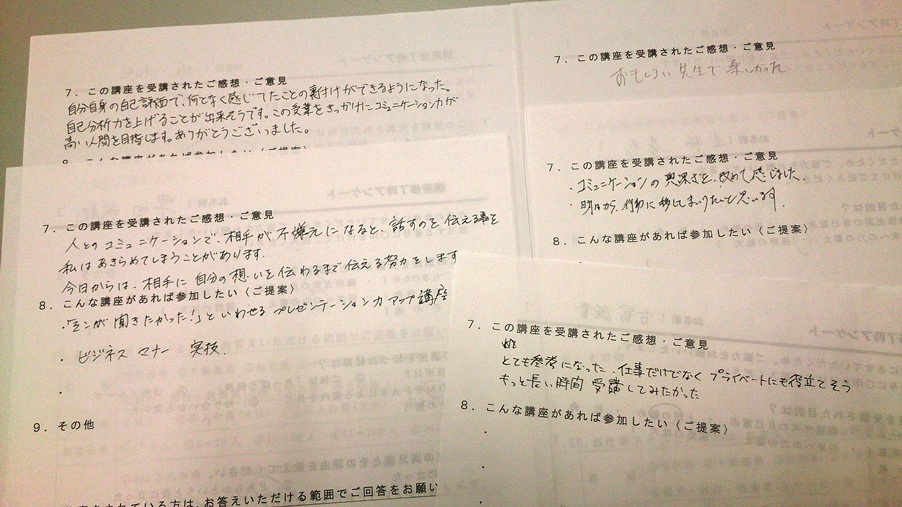 7. この講座を受講されたご感想・ご意見
自分自身の自己評価で、何となく感じてたことの裏付けができるようになった。
自己分析力を上げることが出来そうです。この授業をきっかけにコミュニケーション力が
高い人間を目指します。ありがとうございました。
8. こんな講座があれば参加したい(ご提案)
7. この講座を受講されたご感想・ご意見
おもしろい先生で楽しかった
7. この講座を受講されたご感想・ご意見
・コミュニケーションの奥深さを、改めて感じました。
・明日から、行動に移してまいりたいと思います。
8. こんな講座があれば参加したい(ご提案)
7. この講座を受講されたご感想・ご意見
人とのコミュニケーションで、相手が不機元になると、話すのを伝える事を
私はあきらめてしまうことがあります。
今日からは、相手に自分の想いを伝わるまで伝える努力をします
8. こんな講座があれば参加したい(ご提案)
・「ソコが聞きたかった!」といわせるプレゼンテーション力アップ講座
・ビジネスマナー 実技
・
9. その他
されている方は、お答えいただける範囲でご回答をお願い
7. この講座を受講されたご感想・ご意見
とても参考になった。仕事だけでなくプライベートにも役立てそう
もっと長い時間受講してみたかった
8. こんな講座があれば参加したい(ご提案)
・
・